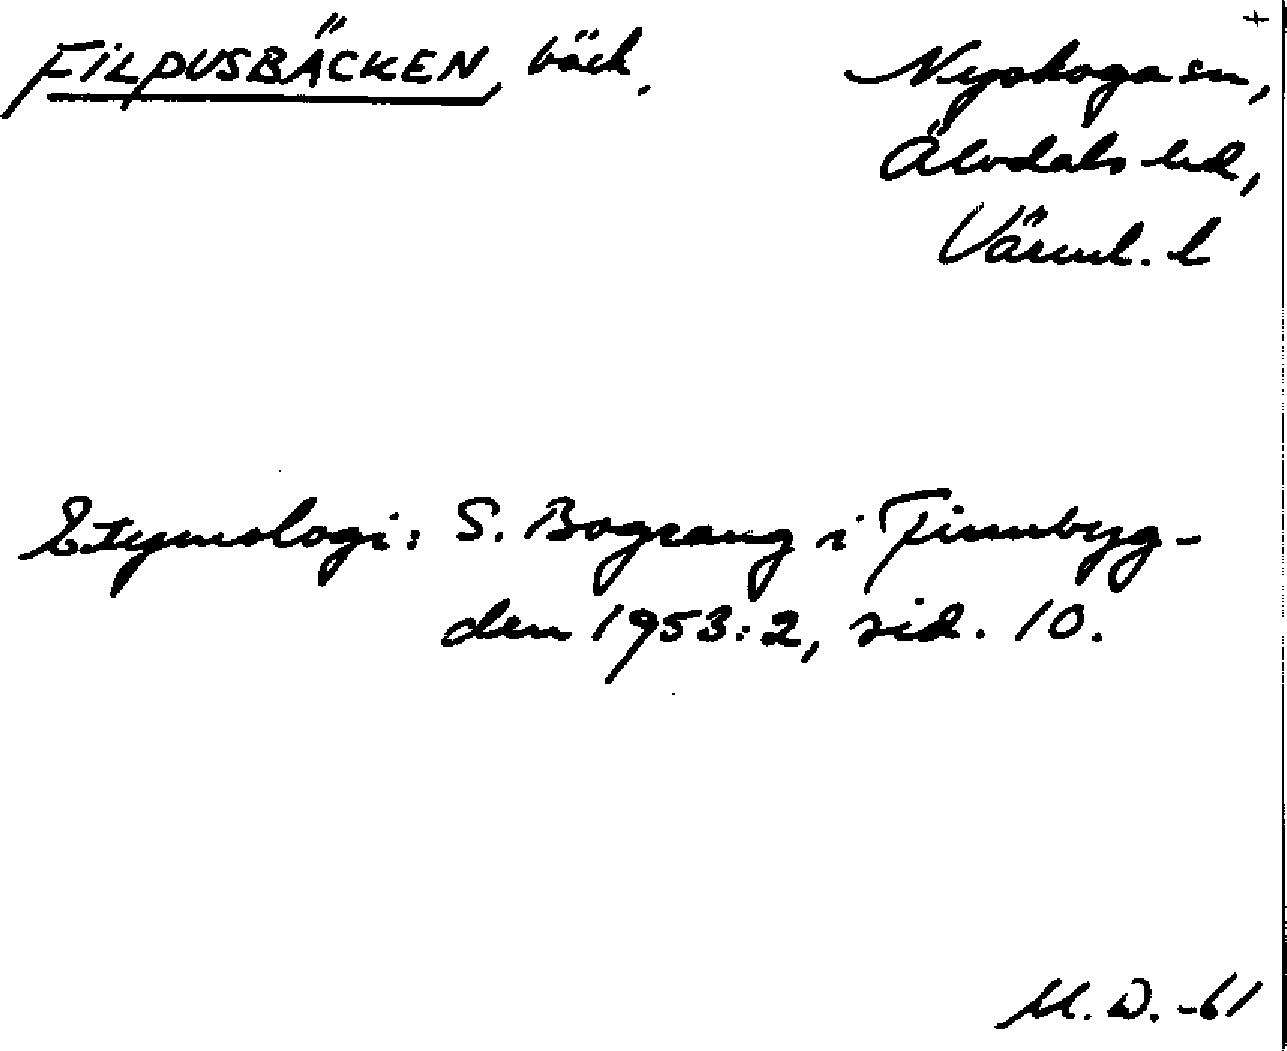 +
FILPUSBÄCKEN, bäck, Nyskoga sn,
Älvdals hd,
Värml. l
Etymologi: S. Bograng i Finnbyg-
den 1953:2, sid. 10.
M. D. -61